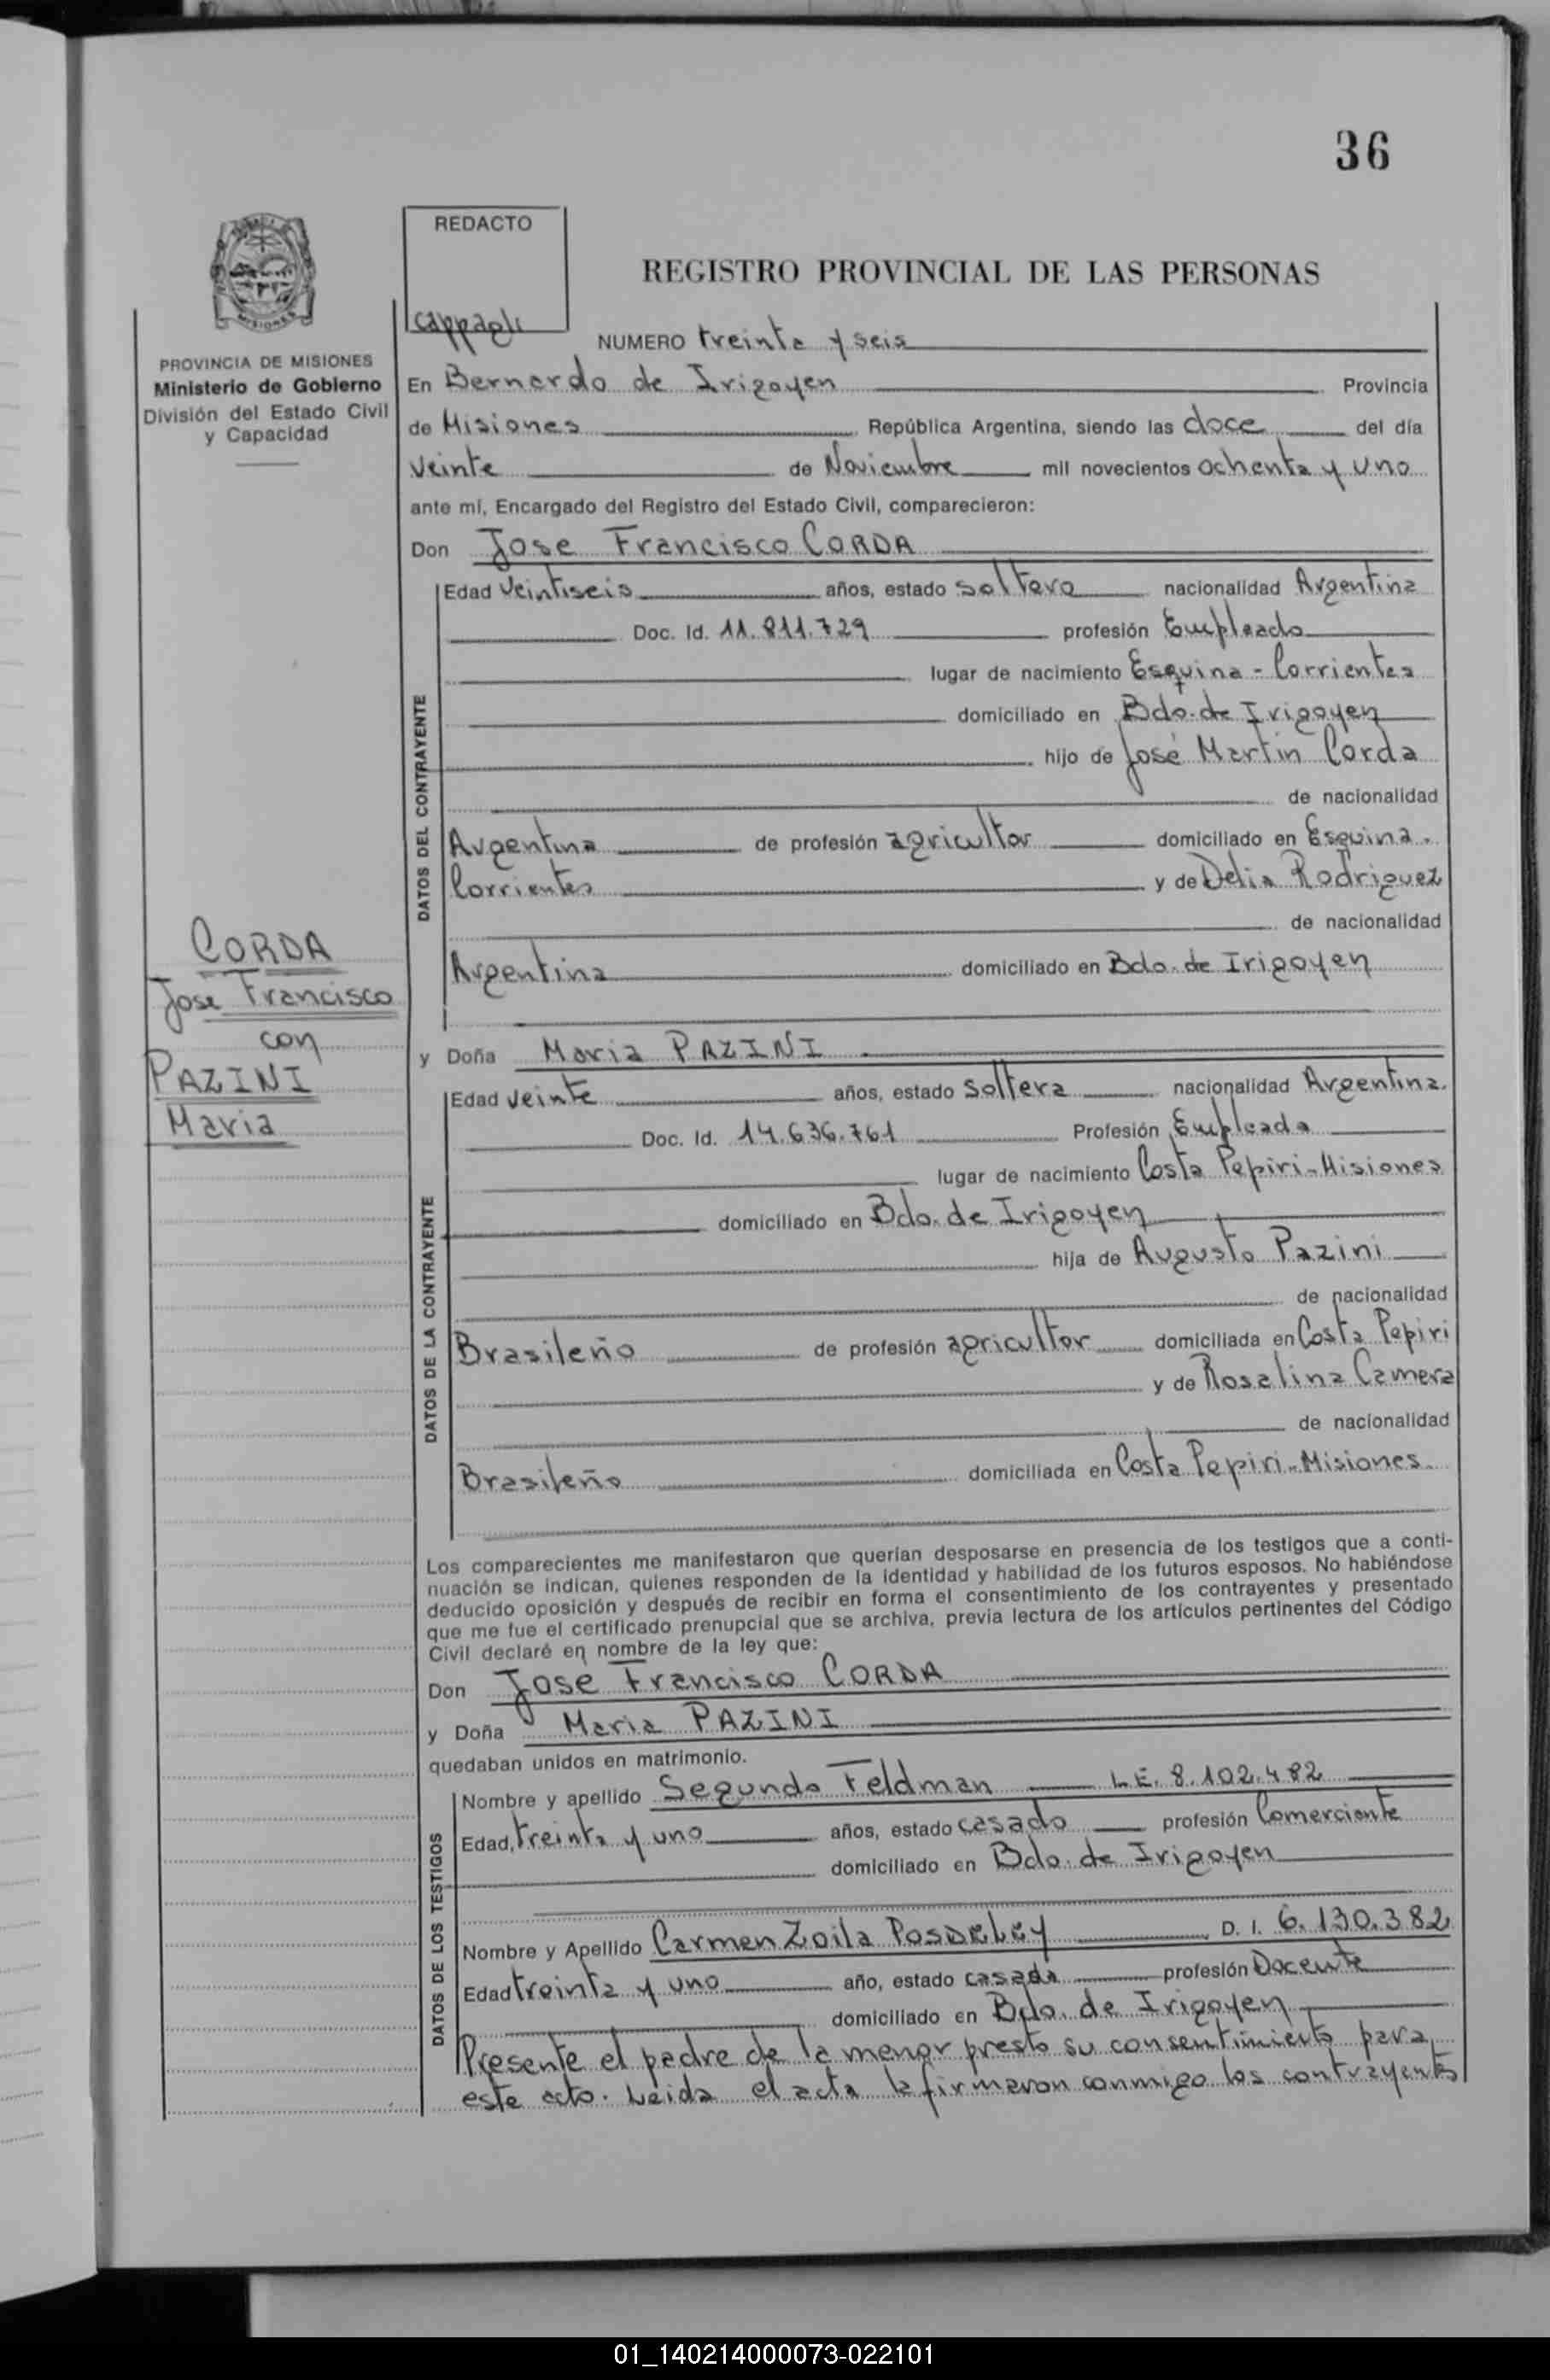 36
REDACTO
REGISTRO PROVINCIAL DE LAS PERSONAS
MISIONES
Cappagli
NUMERO treinta y seis
PROVINCIA DE MISIONES
Ministerio de Gobierno
División del Estado Civil
y Capacidad
En Bernardo de Irigoyen Provincia
de Misiones República Argentina, siendo las doce del día
veinte de Noviembre mil novecientos ochenta y uno
ante mí, Encargado del Registro del Estado Civil, comparecieron:
Don Jose Francisco CORDA
DATOS DEL CONTRAYENTE
Edad veintiseis años, estado soltero nacionalidad Argentina
Doc. Id. 11.811.729 profesión Empleado
lugar de nacimiento Esquina - Corrientes
domiciliado en Bdo. de Irigoyen
hijo de José Martin Corda
de nacionalidad
Argentina de profesión agricultor domiciliado en Esquina.
Corrientes y de Delia Rodriguez
de nacionalidad
Argentina domiciliado en Bdo. de Irigoyen
CORDA
Jose Francisco
con
PAZINI
Maria
y Doña Maria PAZINI
DATOS DE LA CONTRAYENTE
Edad veinte años, estado soltera nacionalidad Argentina.
Doc. Id. 14.636.761 Profesión Empleada
lugar de nacimiento Costa Pepiri-Misiones
domiciliado en Bdo. de Irigoyen
hija de Augusto Pazini
de nacionalidad
Brasileño de profesión agricultor domiciliada en Costa Pepiri
y de Rosalina Camera
de nacionalidad
Brasileño domiciliada en Costa Pepiri-Misiones.
Los comparecientes me manifestaron que querían desposarse en presencia de los testigos que a conti-
nuación se indican, quienes responden de la identidad y habilidad de los futuros esposos. No habiéndose
deducido oposición y después de recibir en forma el consentimiento de los contrayentes y presentado
que me fue el certificado prenupcial que se archiva, previa lectura de los artículos pertinentes del Código
Civil declaré en nombre de la ley que:
Don Jose Francisco CORDA
y Doña Maria PAZINI
quedaban unidos en matrimonio.
DATOS DE LOS TESTIGOS
Nombre y apellido Segundo Feldman LE. 8.102.482
Edad, treinta y uno años, estado casado profesión Comerciante
domiciliado en Bdo. de Irigoyen
Nombre y Apellido Carmen Zoila D. I. 6.130.382
Edad treinta y uno año, estado casada profesión Docente
domiciliado en Bdo. de Irigoyen
Presente el padre de la menor presto su consentimiento para
este acto. Leida el acta la firmaron conmigo los contrayentes
01_140214000073-022101